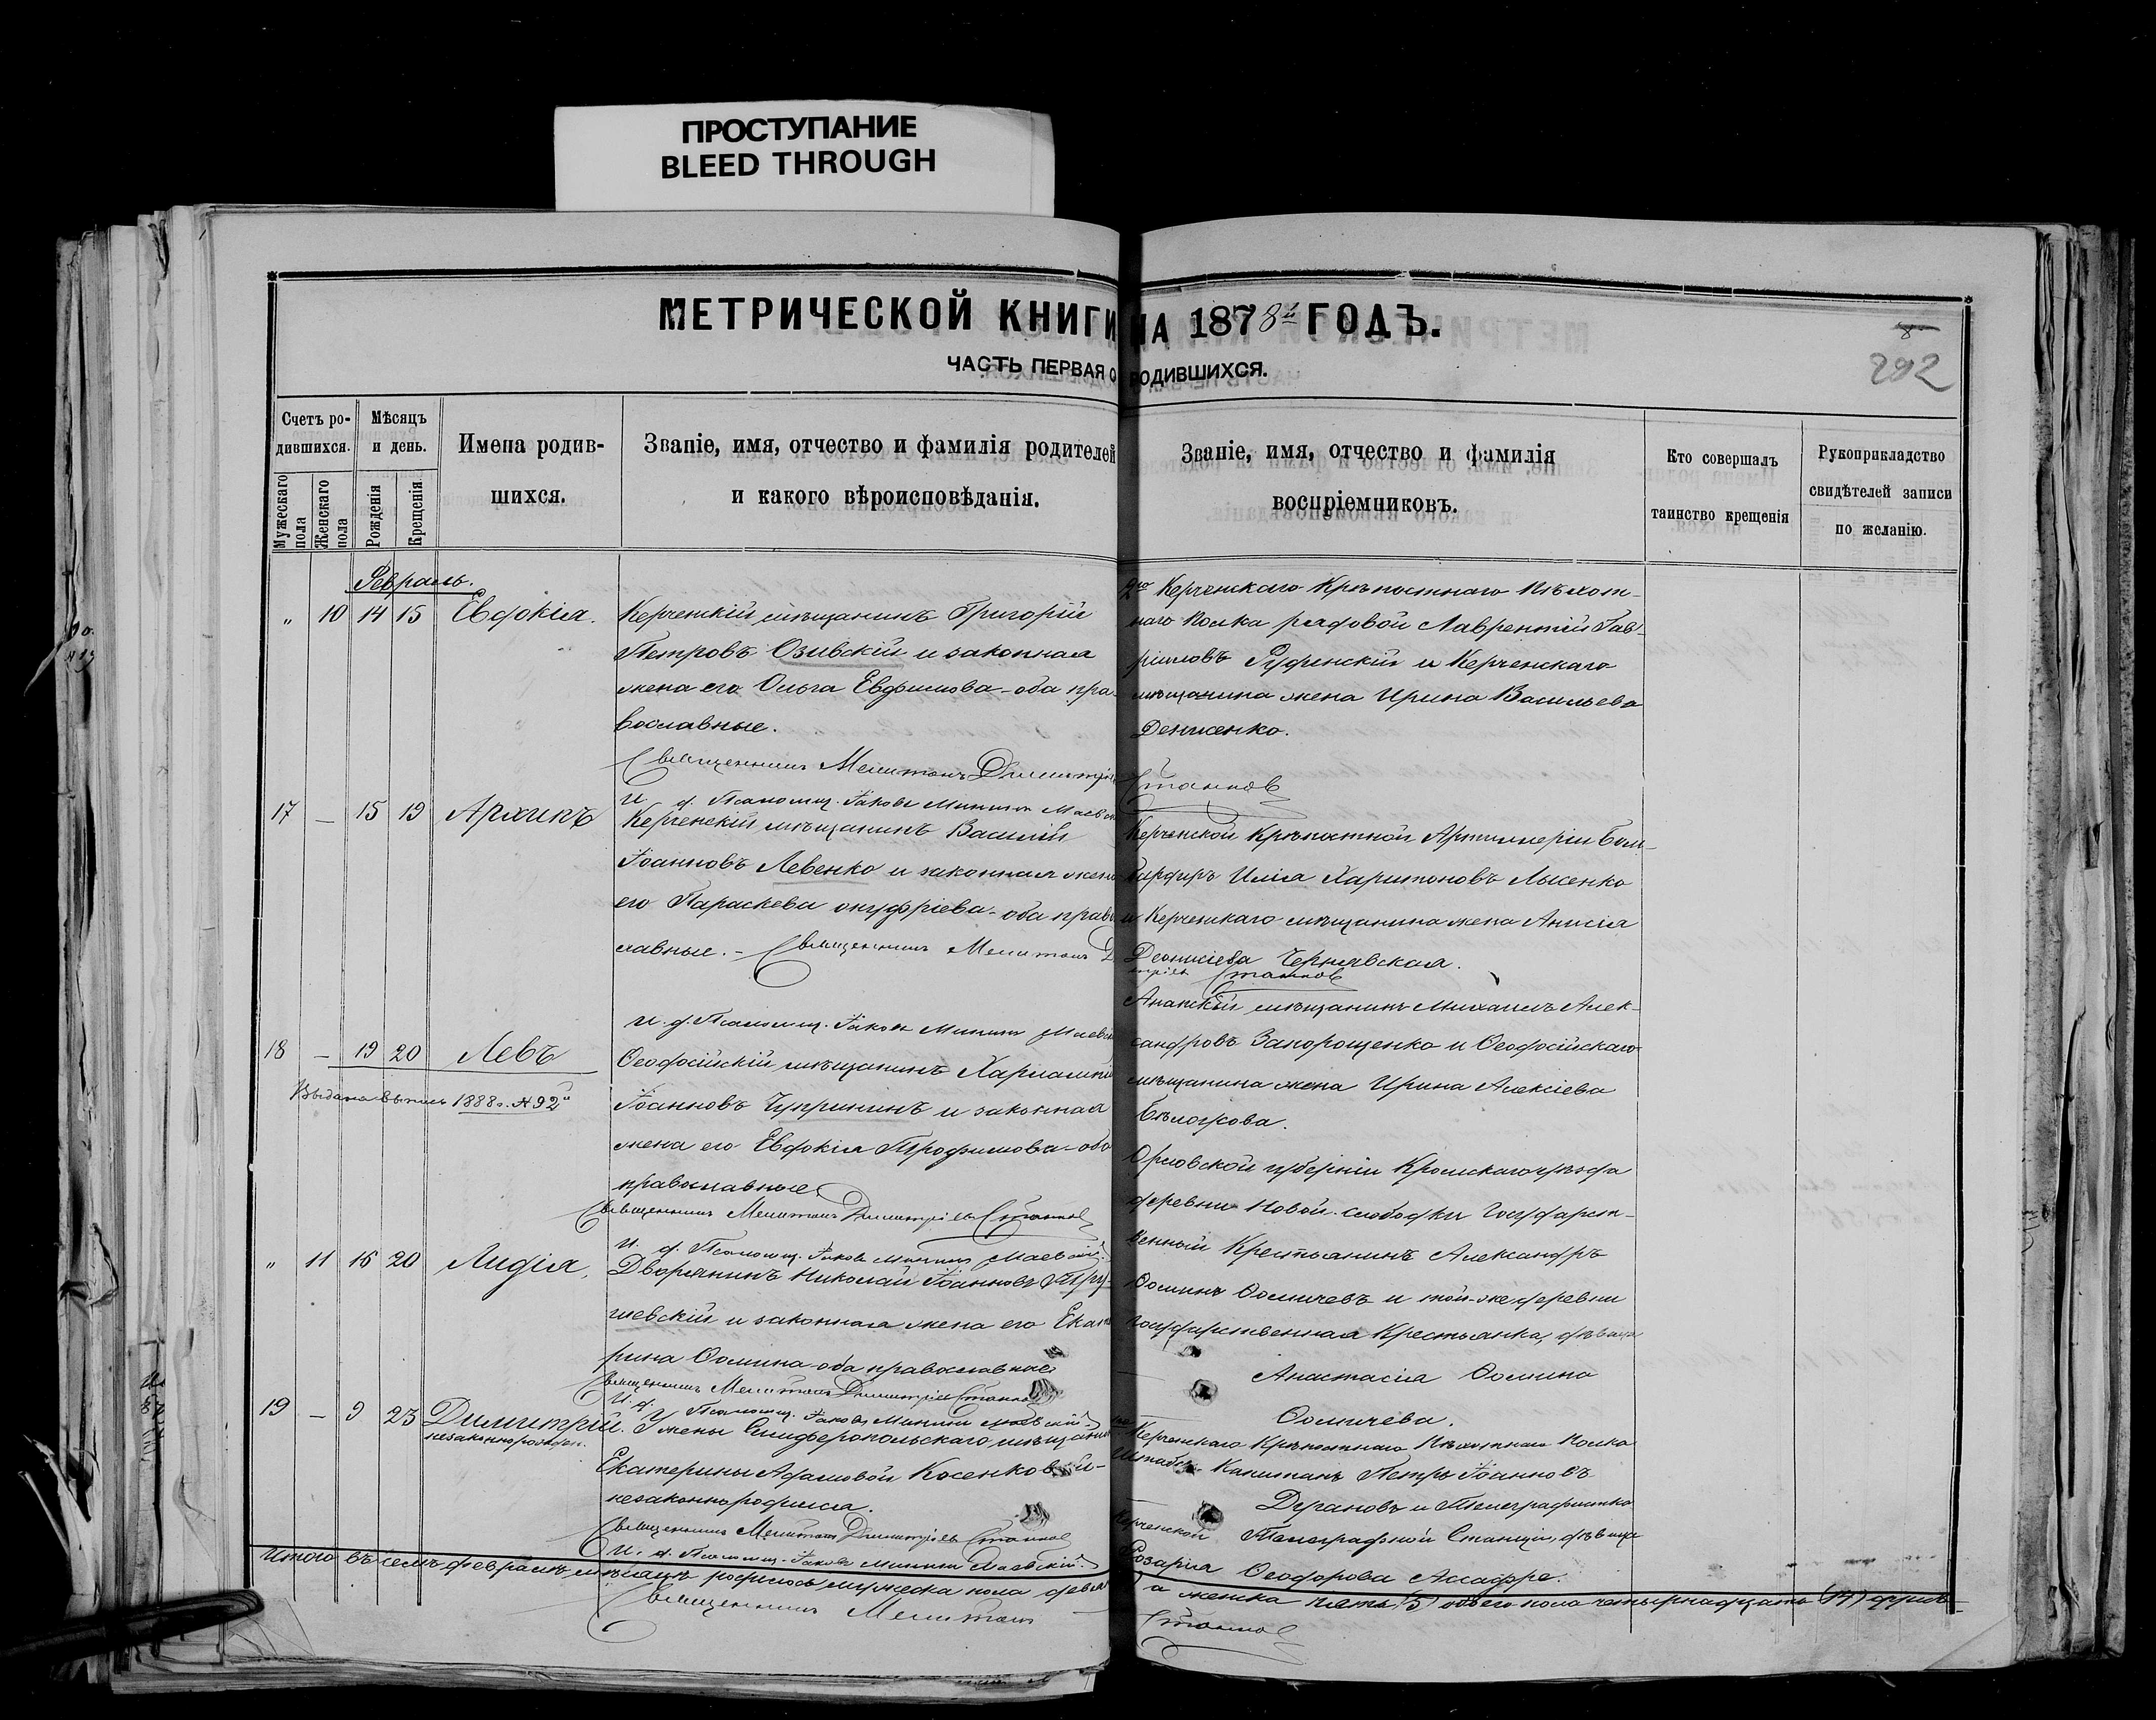 ПРОСТУПАНИЕ
BLEED THROUGH
МЕТРИЧЕСКОЙ КНИГИ НА 1878й ГОДЪ.
ЧАСТЬ ПЕРВАЯ О РОДИВШИХСЯ.
292
Счетъ ро-
дившихся.
Мужескаго пола
Женскаго пола
Мѣсяцъ
и день.
Рожденія
Крещенія
Имена родив-
шихся.
Званіе, имя, отчество и фамилія родителей
и какого вѣроисповѣданія.
Званіе, имя, отчество и фамилія
воспріемниковъ.
Кто совершалъ
таинство крещенія
Рукоприкладство
свидѣтелей записи
по желанію.
Февраль.
„ 10 14 15 Евдокія.
Керченскій мѣщанинъ Григорій
Петровъ Озивскій и законная
жена его Ольга Евфимова - оба пра-
вославные.
Священникъ Мелитонъ Димитріевъ Станков
И. д. Псаломщ. Іаковъ Маевскій
2го Керченскаго Крѣпостнаго Пѣхот-
наго Полка рядовой Лаврентій Гав-
ріиловъ Руфинскій и Керченскаго
мѣщанина жена Ирина Васильева
Денисенко.
17 — 15 19 Архипъ
Керченскій мѣщанинъ Василій
Іоанновъ Левенко и законная жена
его Параскева Онуфріева - оба право
славные. - Священникъ Мелитонъ Димитріевъ Станков
И. д. Псаломщ. Іаковъ Маевскій
Керченской Крѣпостной Артиллеріи Бом-
бардиръ Илія Харитоновъ Лысенко
и Керченскаго мѣщанина жена Анисія
Деонисіева Чернявская.
18 — 19 20 Левъ
Выдана выпись 1888 г. №92й
Ѳеодосійскій мѣщанинъ Харлампій
Іоанновъ Чупринъ и законная
жена его Евдокія Трофимова - оба
православные
Священникъ Мелитонъ Димитріевъ Станков
И. д. Псаломщ. Іаковъ Маевскій
Анапскій мѣщанинъ Михаилъ Алек-
сандровъ Запорощенко и Ѳеодосійскаго
мѣщанина жена Ирина Алексіева
Бѣлоусова.
„ 11 16 20 Лидія
Дворянинъ Николай Іоанновъ Тру-
шевскій и законная жена его Екате
рина Ѳомина - оба православные
Священникъ Мелитонъ Димитріевъ Станков
И. д. Псаломщ. Іаковъ Маевскій
Орловской губерніи Кромскаго уѣзда
деревни Новой слободки Государст-
венный Крестьянинъ Александръ
Ѳоминъ Ѳомичевъ и той-же деревни
государственная Крестьянка, дѣвица
Анастасія Ѳомина
Ѳомичева.
19 — 9 23 Димитрій.
незаконнорожден.
У жены Симферопольскаго мѣщанина
Екатерины Адамовой Косенковой -
незаконнорожденъ.
Священникъ Мелитонъ Димитріевъ Станков
И. д. Псаломщ. Іаковъ Маевскій
Керченскаго Крѣпостнаго Пѣхотнаго Полка
Штабсъ Капитанъ Петръ Іоанновъ
Дурановъ и Телеграфистка
Керченской Телеграфной Станціи, дѣвица
Розарія Ѳеодорова Ассафре.
Итого въ семъ февралѣ мѣсяцѣ родилось мужеска пола девять а женска пять (5) обоего пола четырнадцать (14) душъ
Священникъ Мелитонъ Станков